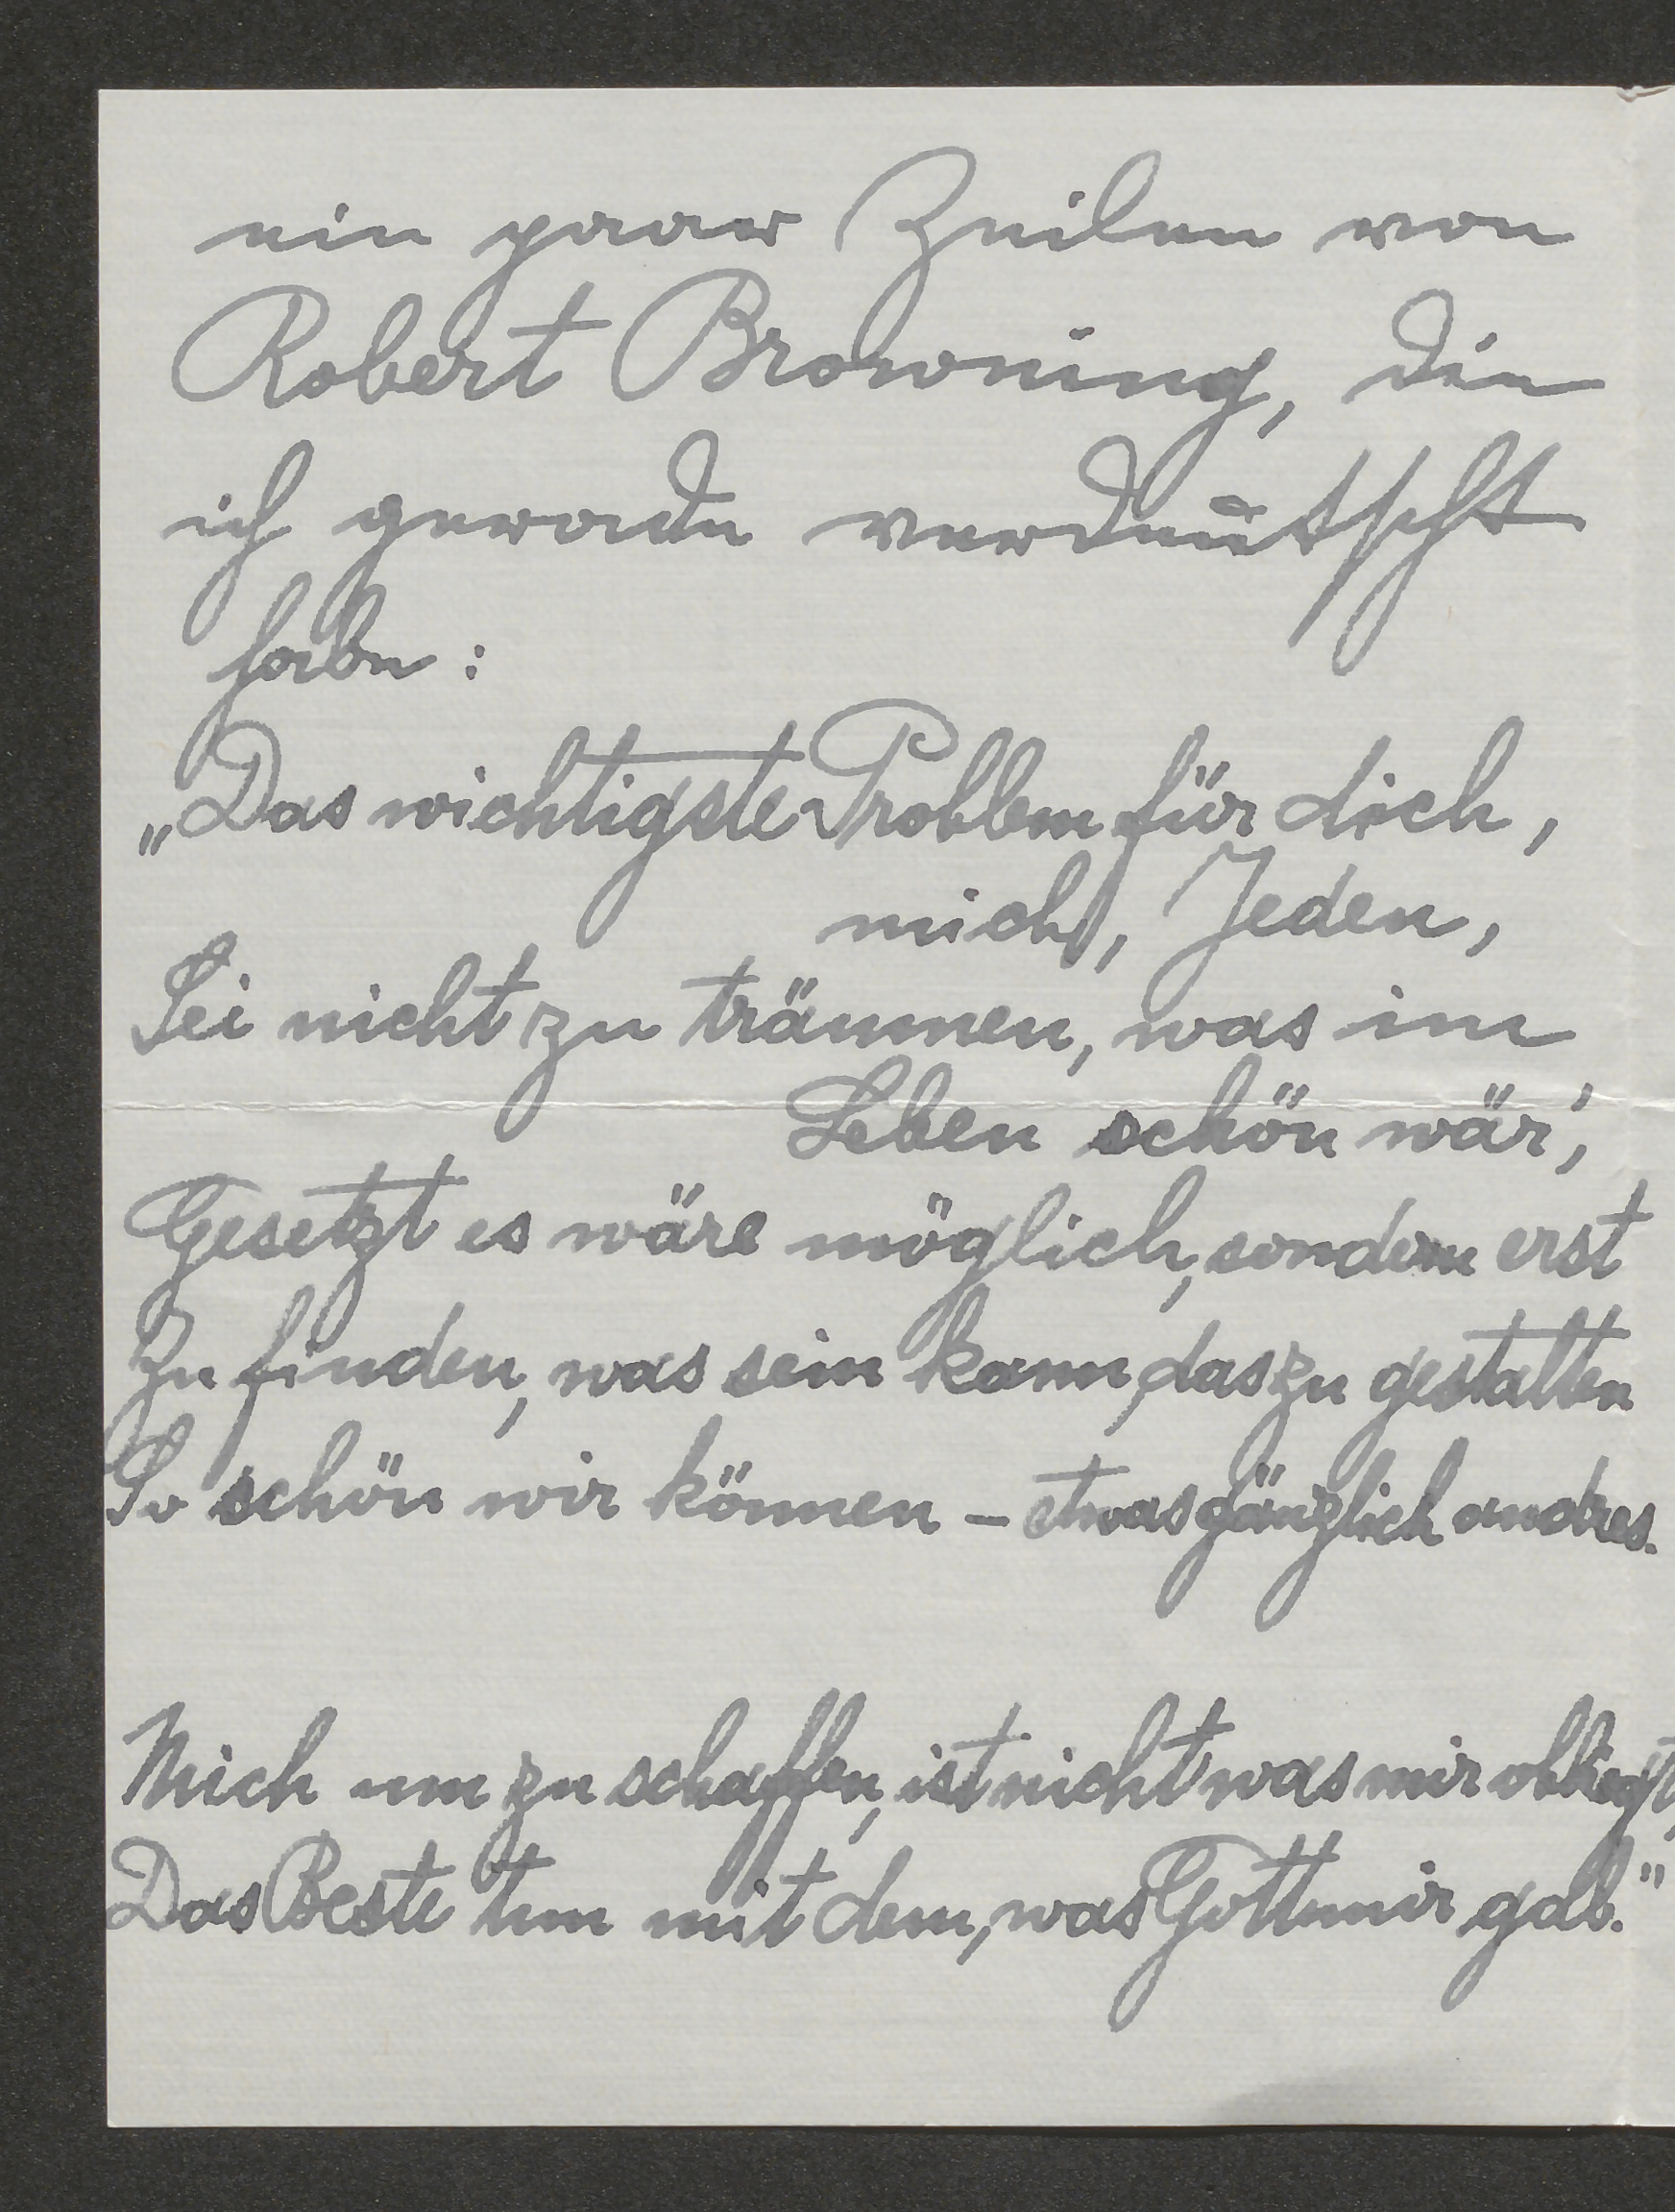 ein paar Zeilen von
Robert Browning, die
ich gerade verdeutscht
habe:
„Das wichtigste Problem für dich,
mich, Jeden,
Sei nicht zu träumen, was im
Leben schön wär',
Gesetzt es wäre möglich, sondern erst
Zu finden, was sein kann, das zu gestalten
So schön wir können – etwas gänzlich andres.
Mich um zu schaffen, ist nicht was mir obliegt,
Das Beste tun mit dem, was Gott mir gab."